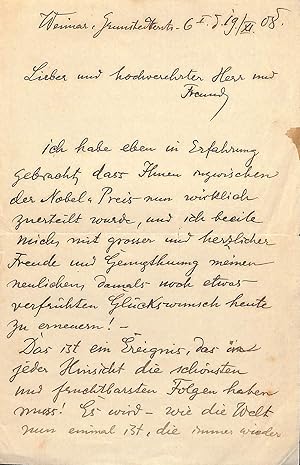 Weimar, Grunstedterstr. 6 I. d. 19/XI 08.
Lieber und hochverehrter Herr und
Freund,
ich habe eben in Erfahrung
gebracht, dass Ihnen inzwischen
der Nobel-Preis nun wirklich
zuerteilt wurde, und ich beeile
mich, mit grosser und herzlicher
Freude und Genugthuung meinen
neulichen, damals noch etwas
verfrühten Glückswunsch heute
zu erneuern! —
Das ist ein Ereignis, das in
jeder Hinsicht die schönsten
und fruchtbarsten Folgen haben
muss! Es wird — wie die Welt
nun einmal ist, die immer wieder